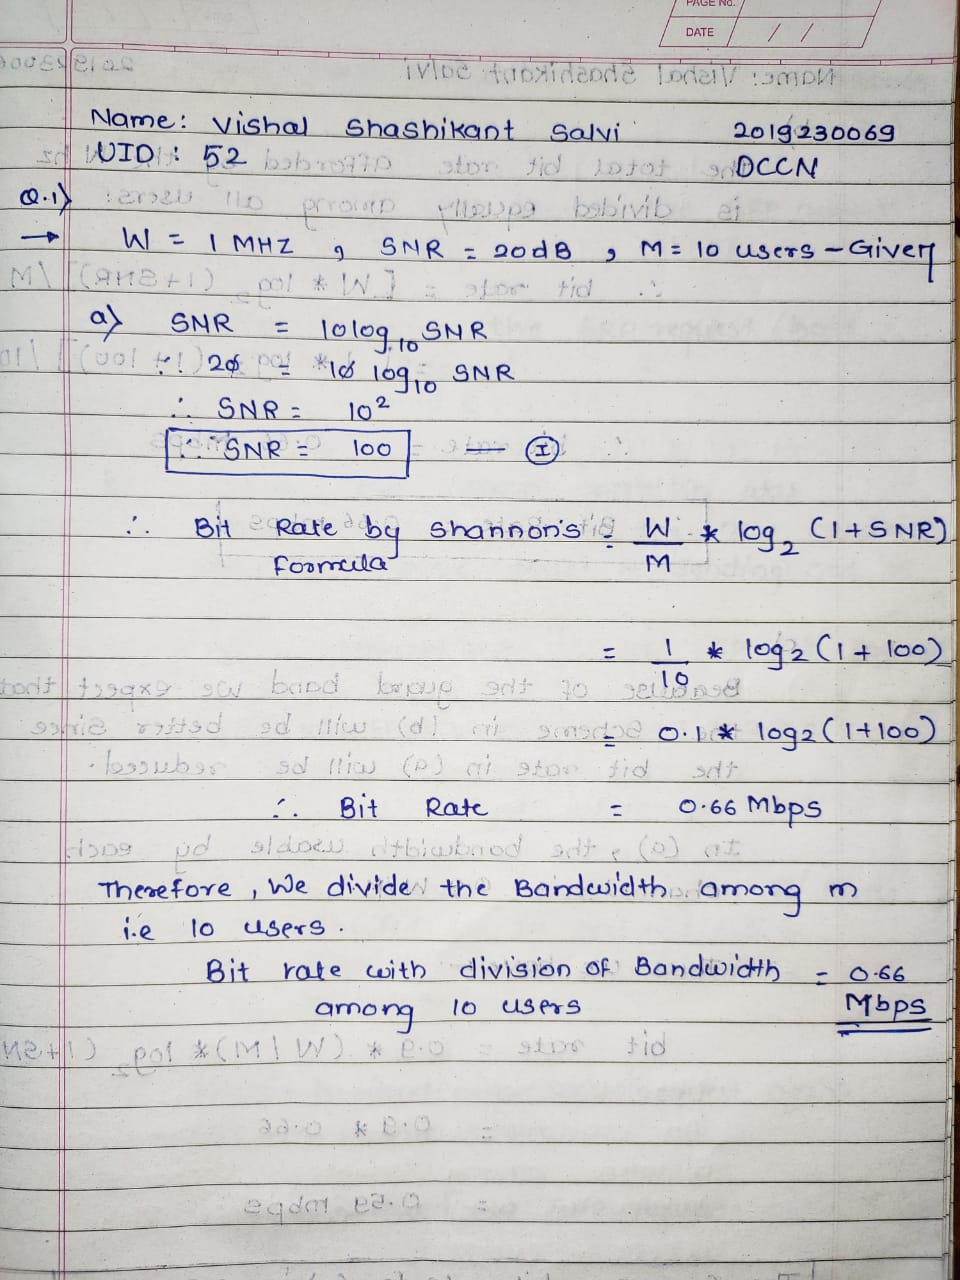 PAGE No.
DATE / /
Name: Vishal Shashikant Salvi 2019230069
UID: 52 DCCN
Q.1)
→ W = 1 MHZ , SNR = 20dB , M = 10 users - Given
a) SNR = 10log10 SNR
∴ 20 = 10 log10 SNR
∴ SNR = 10²
∴ SNR = 100 — I
∴ Bit Rate by Shannon's = W/M * log2 (1+SNR)
Formula
= 1/10 * log2 (1 + 100)
= 0.1 * log2 (1+100)
∴ Bit Rate = 0.66 Mbps
Therefore, We divide the Bandwidth among m
i.e 10 users.
Bit rate with division of Bandwidth = 0.66
among 10 users Mbps